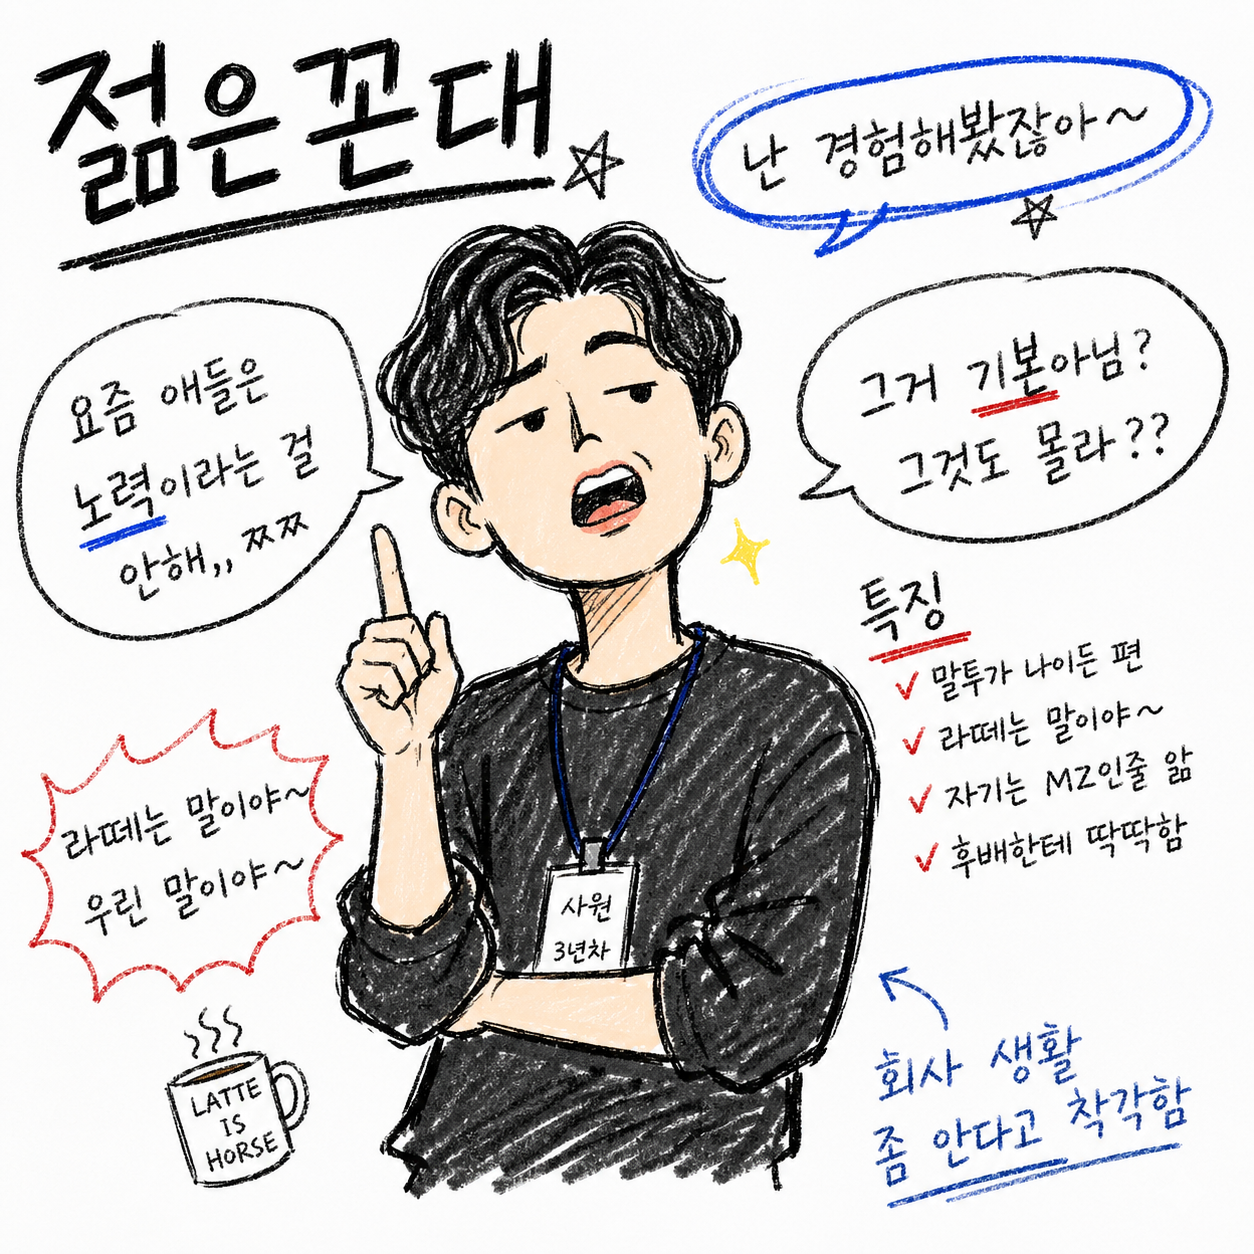 젊은꼰대
난 경험해봤잖아~
요즘 애들은
노력이라는 걸
안해,, ㅉㅉ
그거 기본아님?
그것도 몰라??
특징
말투가 나이든 편
라떼는 말이야~
자기는 MZ인줄 앎
후배한테 딱딱함
라떼는 말이야~
우린 말이야~
사원
3년차
LATTE
IS
HORSE
회사 생활
좀 안다고 착각함